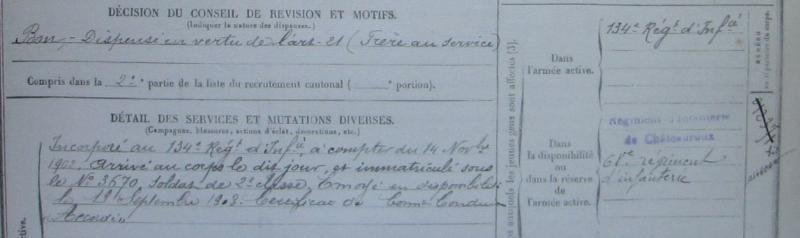 DÉCISION DU CONSEIL DE REVISION ET MOTIFS.
(Indiquer la nature des dispenses.)
Bon, - Dispensé en vertu de l'art. 21 (Frère au service)
Compris dans la 2e partie de la liste du recrutement cantonal ( portion).
DÉTAIL DES SERVICES ET MUTATIONS DIVERSES.
(Campagnes, blessures, actions d'éclat, décorations, etc.)
Incorporé au 134e Régt d'Infie à compter du 14 Novbre
1902. Arrivé au corps le dit jour, et immatriculé sous
le No 3670, Soldat de 2e classe, Envoyé en disponibilité
le 19 Septembre 1903. Certificat de Bonne Conduite
Accordé
Dans
l'armée active.
134e Régt d'Infie
Dans
la disponibilité
ou
dans la réserve
de
l'armée active.
Régiment d'Infanterie
de Châteauroux
61e régiment
d'infanterie
auxquels les jeunes gens sont affectés (3).
au répertoire du corps.